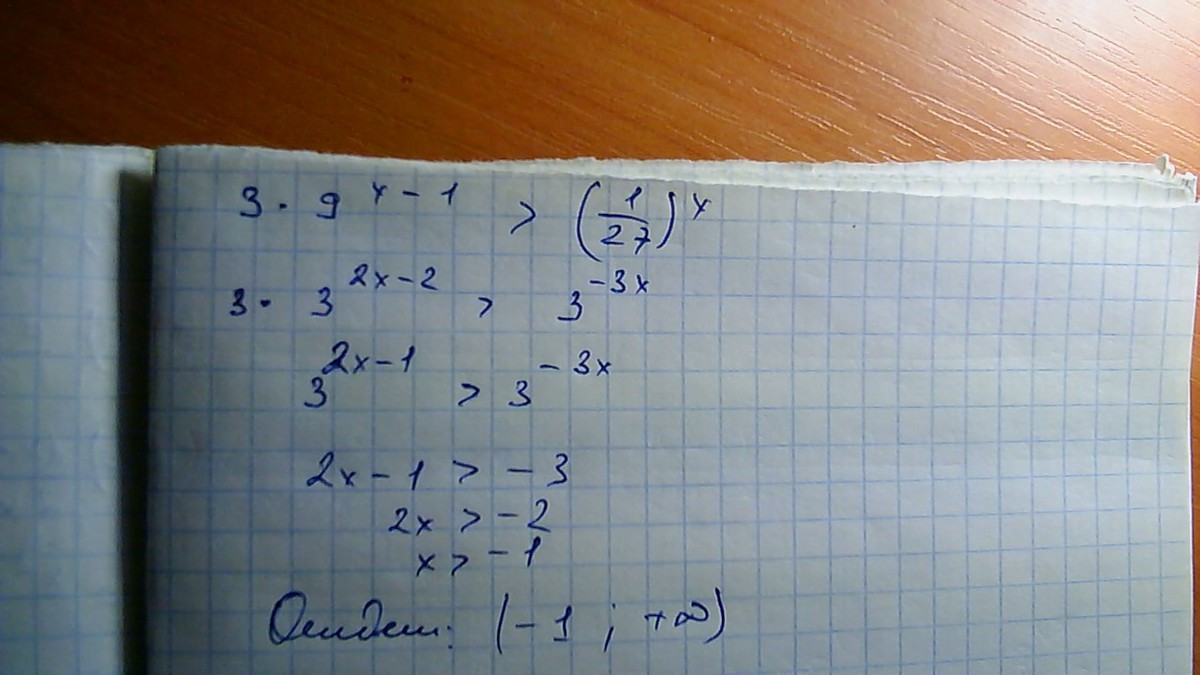 3 · 9^(x-1) > (1/27)^x
3 · 3^(2x-2) > 3^(-3x)
3^(2x-1) > 3^(-3x)
2x - 1 > -3
2x > -2
x > -1
Ответ: (-1 ; +∞)